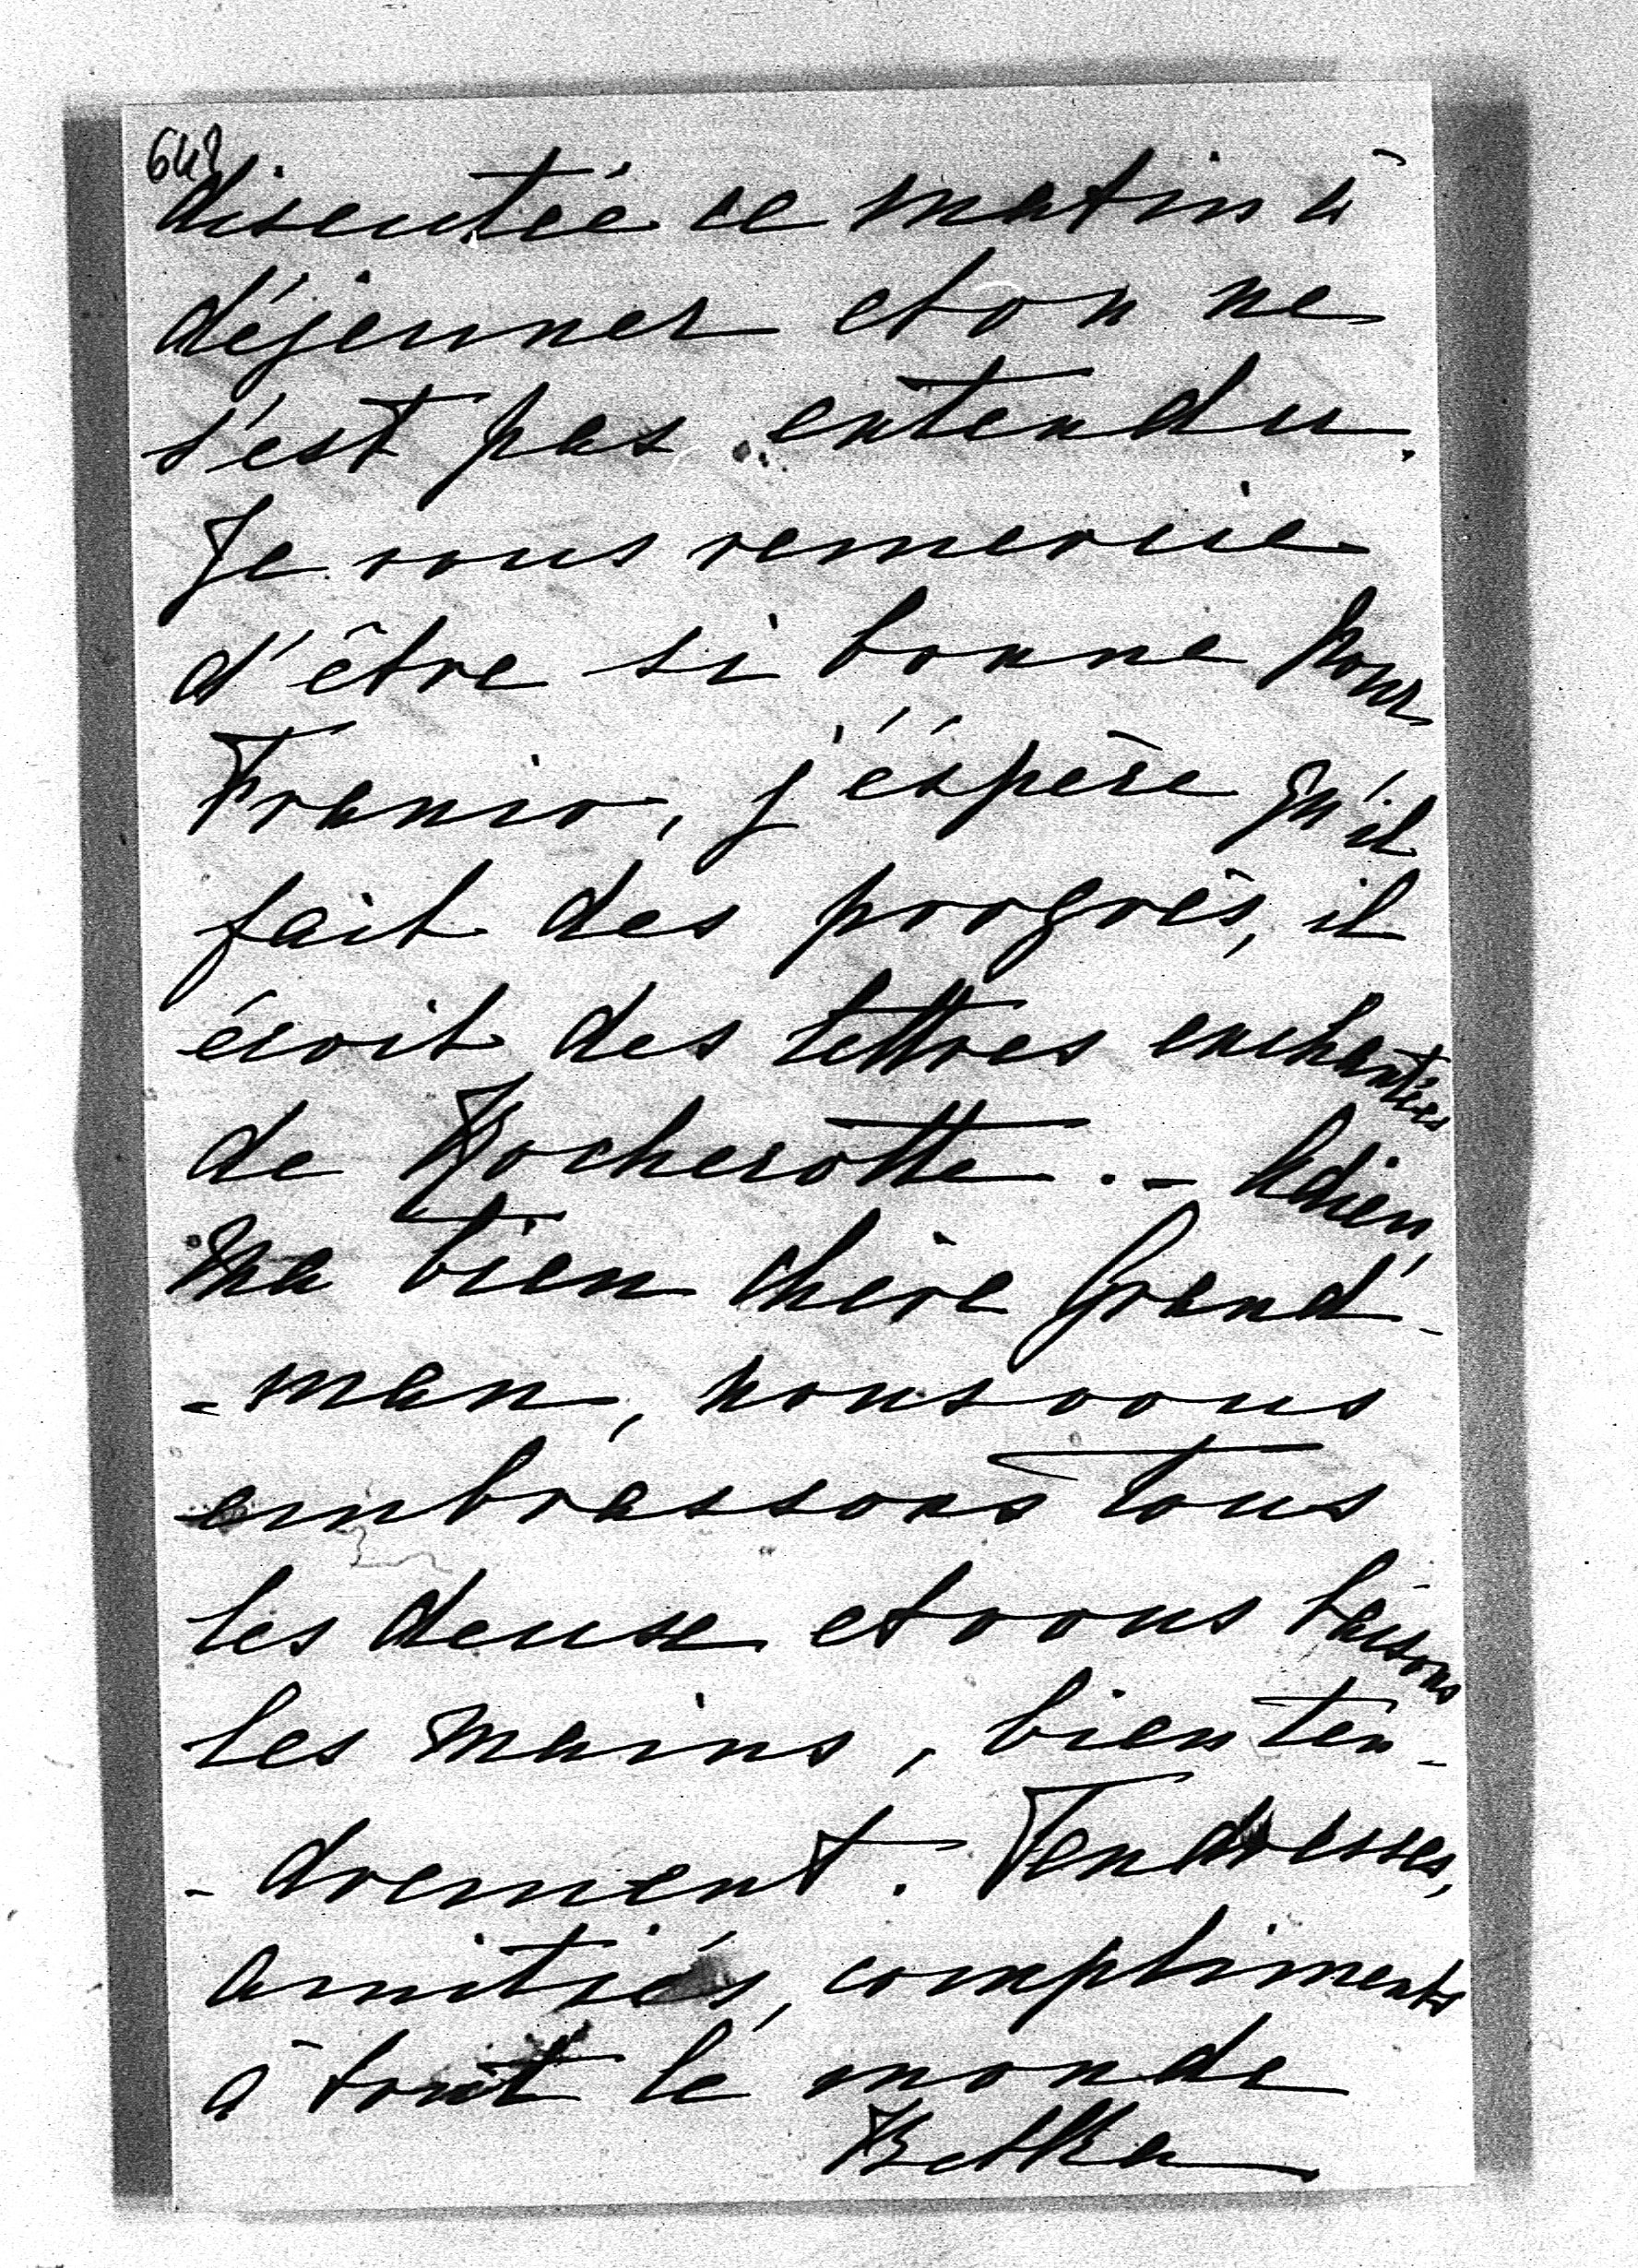 648
discutée ce matin à
déjeuner et on ne
s'est pas entendu.
Je vous remercie
d'être si bonne pour
Francio, j'éspère qu'il
fait des progrès, il
écrit des lettres enchantées
de Rocherotte. - Adieu,
Ma bien chère Grand'-
-man, nous vous
embrassons tous
les deux et vous baisons
les mains, bien ten-
-drement. Tendresses,
amitiés, compliments
à tout le monde
Betka